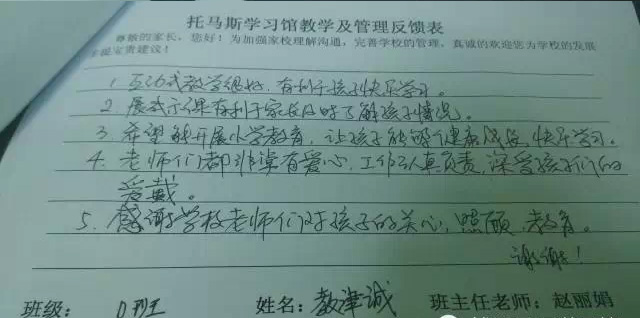 托马斯学习馆教学及管理反馈表
尊敬的家长，您好！为加强家校理解沟通，完善学校的管理，真诚的欢迎您为学校的发展
提宝贵建议！
1 互动式教学很好，有利于孩子快乐学习。
2 展示课有利于家长及时了解孩子情况。
3. 希望能开展小学教育，让孩子能够健康成长，快乐学习。
4. 老师们都非常有爱心，工作认真负责，深受孩子们的
爱戴。
5. 感谢学校老师们对孩子的关心，照顾，教育。
谢谢！
班级： D班 姓名： 津诚 班主任老师：赵丽娟